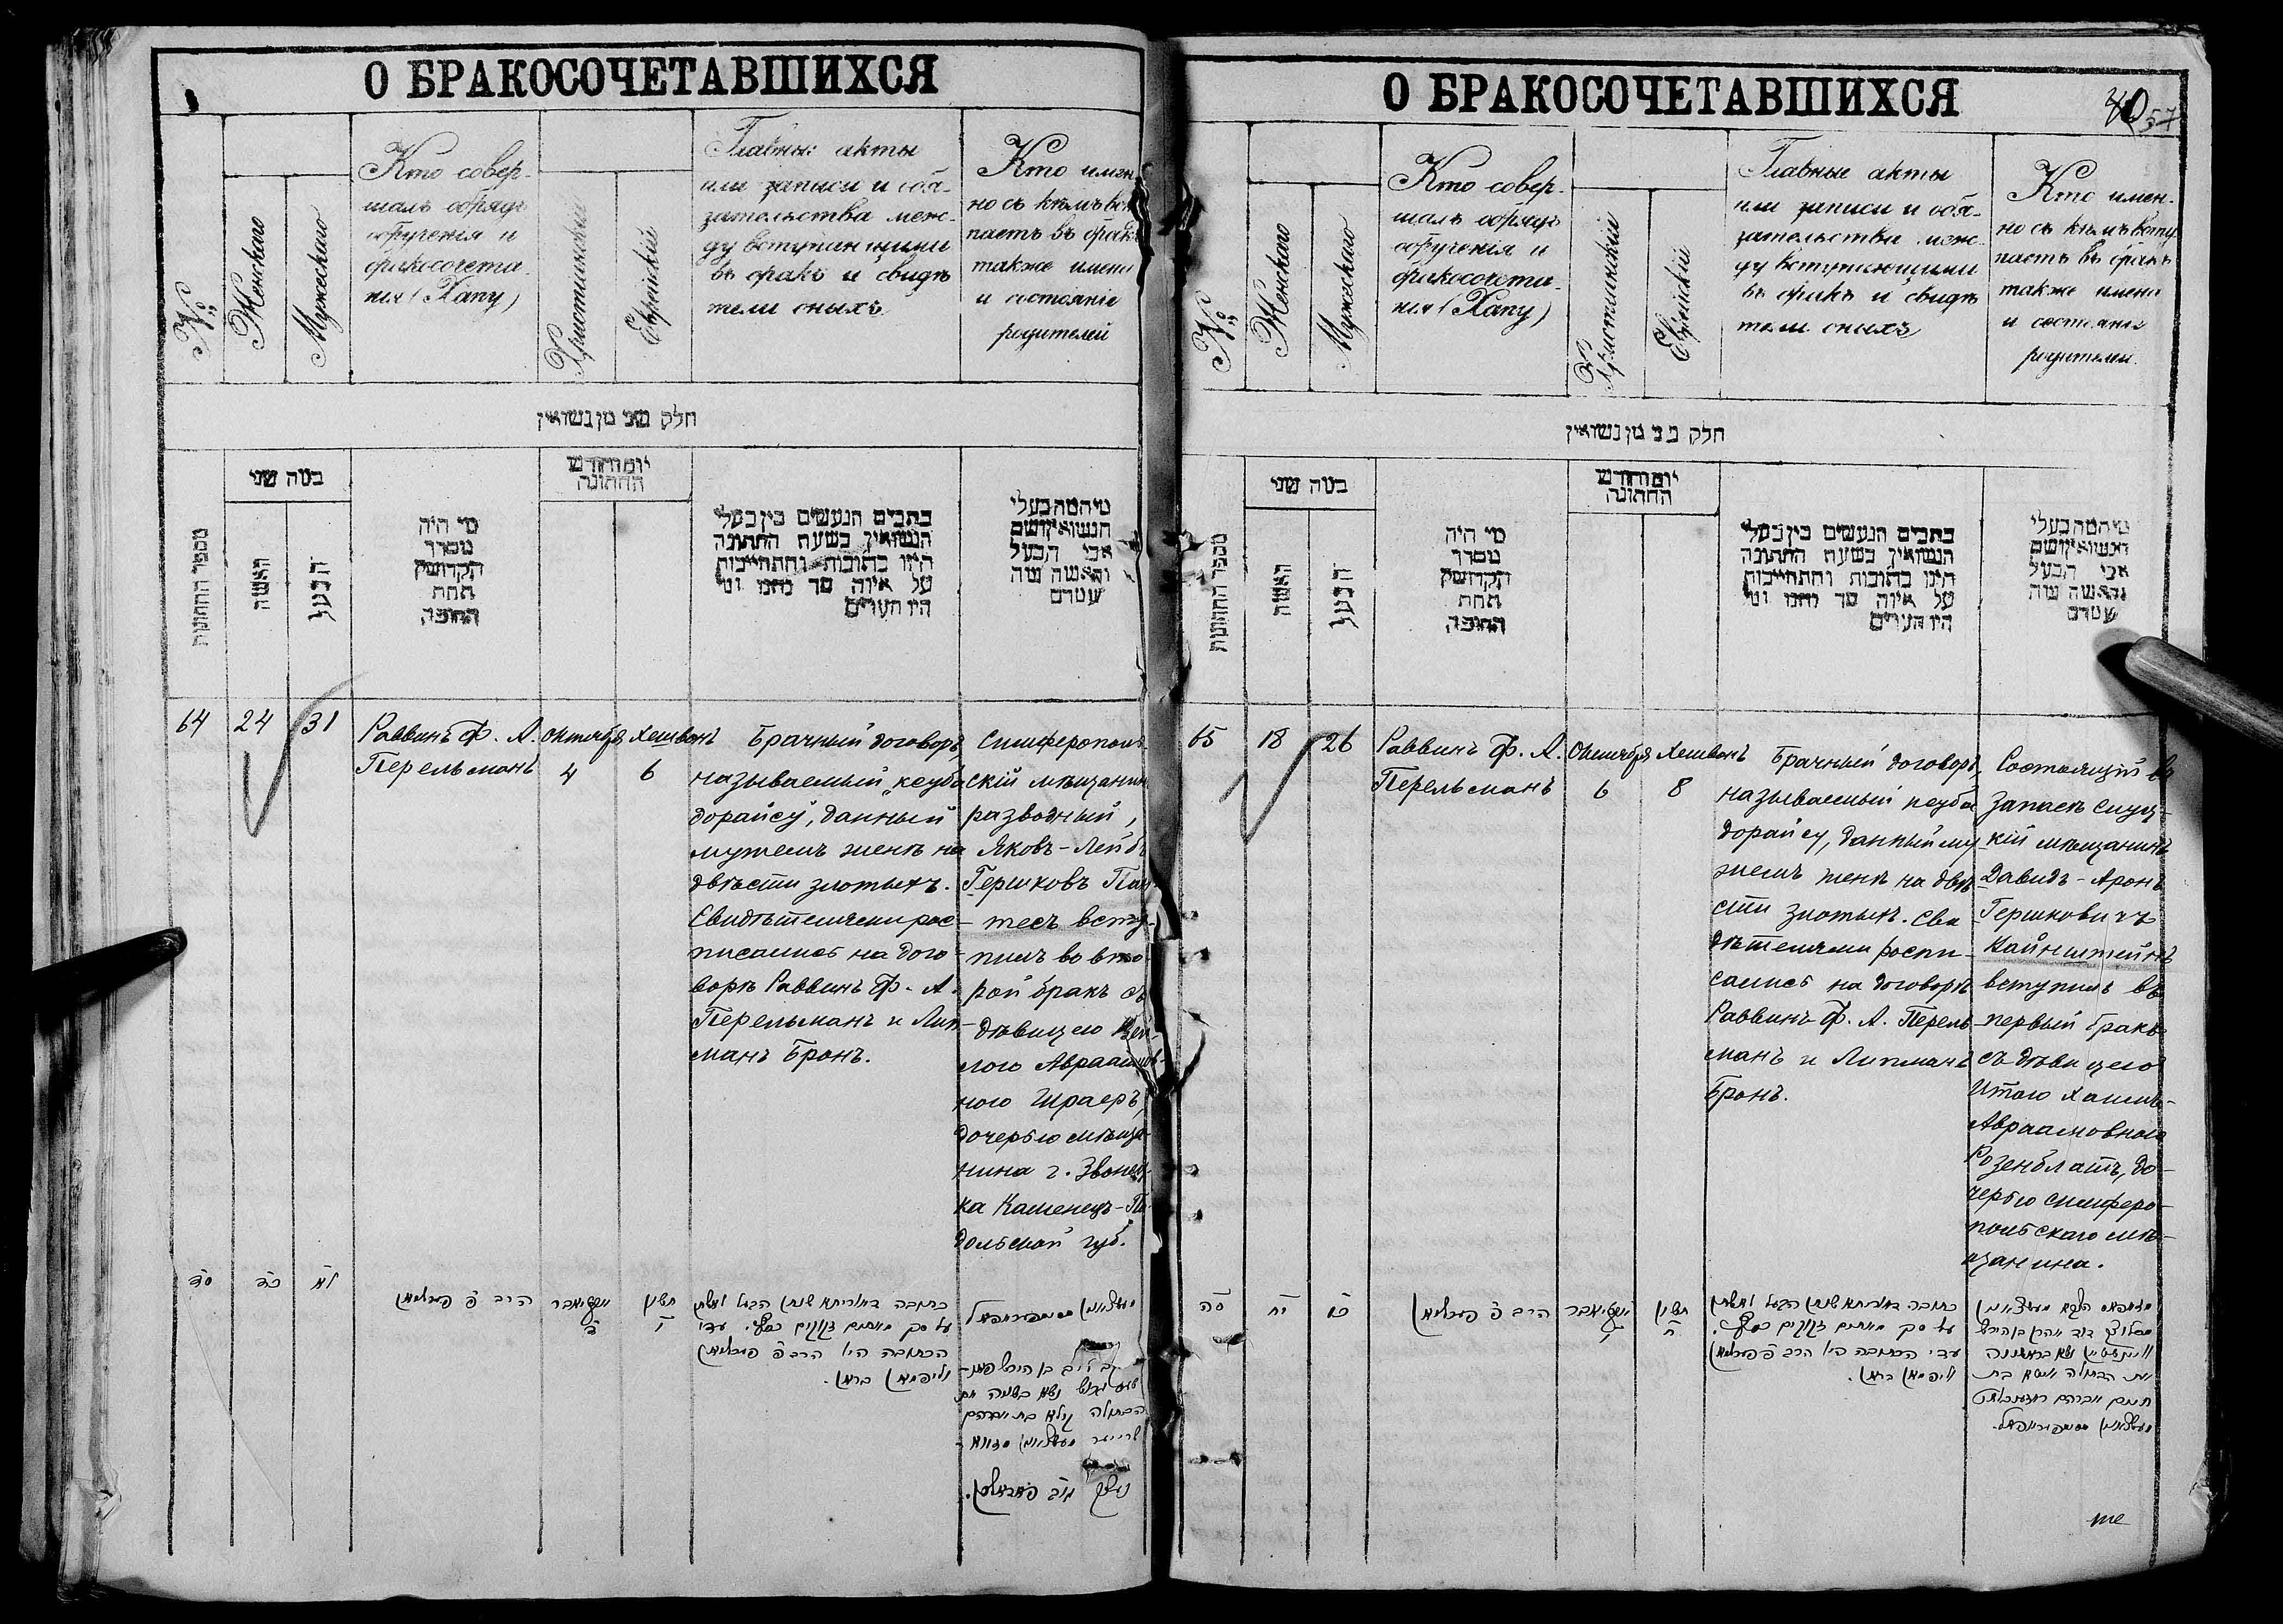 О БРАКОСОЧЕТАВШИХСЯ
№
Женскаго
Мужескаго
Кто совер-
шалъ обрядъ
обрученія и
бракосочета-
нія (Хапу)
Христіанскій
Еврейскій
Главные акты
или записи и обя-
зательства меж-
ду вступающими
въ бракъ и свидѣ
тели оныхъ
Кто имен
но съ кѣмъ всту
паетъ въ бракъ
также имена
и состояніе
родителей
חלק שני מן נשואין
מספר החתונות
כמה שני
האשה
הבעל
מי היה
מסדר
הקדושין
תחת
החופה
יום וחודש
החתונה
כתבים הנעשים בין בעלי
הנשואין בשעת החתונה
היינו כתובות והתחייבות
על איזה סך נתנו ומי
היו העדים
מי המה בעלי
הנשואין ושם
אבי הבעל
והאשה ומה
שמרם
64
24
31
Раввинъ Ф. А.
Перельманъ
Октября
4
Хешванъ
6
Брачный договоръ,
называемый „кеуба
дорайсу, данный
мужемъ женѣ на
двѣсти злотыхъ.
Свидѣтелями рос-
писались на дого-
ворѣ Раввинъ Ф. А.
Перельманъ и Лип-
манъ Бронъ.
Симферополь-
скій мѣщанинъ
разводный,
Яковъ-Лейбъ
Гершковъ Пан-
тесъ всту-
пилъ во вто-
рой бракъ съ
дѣвицею
Авраамов-
ною Шраеръ,
дочерью мѣща-
нина г. Звонец-
ка Каменецъ-По-
дольской губ.
סד
כד
לא
הרב פ פערלמאן
אקטיאבר
ד
חשון
ו
כתובה דאורייתא שנתן הבעל לאשתו
על סך מאתים זקוקים כסף. עדי
הכתובה היו הרב פ פערלמאן
וליפמאן בראן.
О БРАКОСОЧЕТАВШИХСЯ
40
57
№
Женскаго
Мужескаго
Кто совер-
шалъ обрядъ
обрученія и
бракосочета-
нія (Хапу)
Христіанскій
Еврейскій
Главные акты
или записи и обя-
зательства меж-
ду вступающими
въ бракъ и свидѣ
тели оныхъ
Кто имен-
но съ кѣмъ всту
паетъ въ бракъ
также имена
и состояніе
родителей.
חלק שני מן נשואין
מספר החתונות
כמה שני
האשה
הבעל
מי היה
מסדר
הקדושין
תחת
החופה
יום וחודש
החתונה
כתבים הנעשים בין בעלי
הנשואין בשעת החתונה
היינו כתובות והתחייבות
על איזה סך נתנו ומי
היו העדים
מי המה בעלי
הנשואין ושם
אבי הבעל
והאשה ומה
שמרם
65
18
26
Раввинъ Ф. А.
Перельманъ
Октября
6
Хешванъ
8
Брачный договоръ,
называемый кеуба
дорайсу, данный му-
жемъ женѣ на двѣ
сти злотыхъ. Сви
дѣтелями роспи-
сались на договорѣ
Раввинъ Ф. А. Перель-
манъ и Липманъ
Бронъ.
Состоящій въ
запасѣ слуц-
кій мѣщанинъ
Давидъ-Аронъ
Гершковичъ
Вайнштейнъ
вступилъ въ
первый бракъ
съ дѣвицею
Итою Хаимъ-
Авраамовною
Розенблатъ, до-
черью симферо-
польскаго мѣ-
щанина.
סה
יח
כו
הרב פ פערלמאן
אקטיאבר
ו
חשון
ח
כתובה דאורייתא שנתן הבעל לאשתו
על סך מאתים זקוקים כסף.
עדי הכתובה היו הרב פ פערלמאן
וליפמאן בראן.